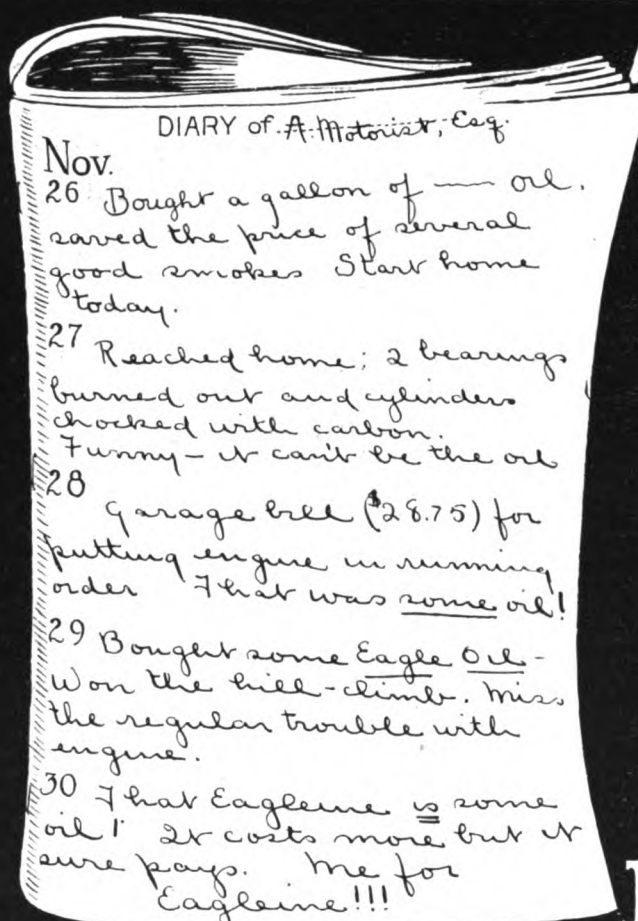 DIARY of A. Motorist, Esq.
Nov.
26 Bought a gallon of — oil.
saved the price of several
good smokes Start home
today.
27 Reached home; 2 bearings
burned out and cylinders
chocked with carbon.
Funny - it can't be the oil
28
Garage bill ($28.75) for
putting engine in running
order That was some oil!
29 Bought some Eagle Oil -
Won the hill-climb. Miss
the regular trouble with
engine.
30 That Eagleine is some
oil! It costs more but it
sure pays. Me for
Eagleine!!!